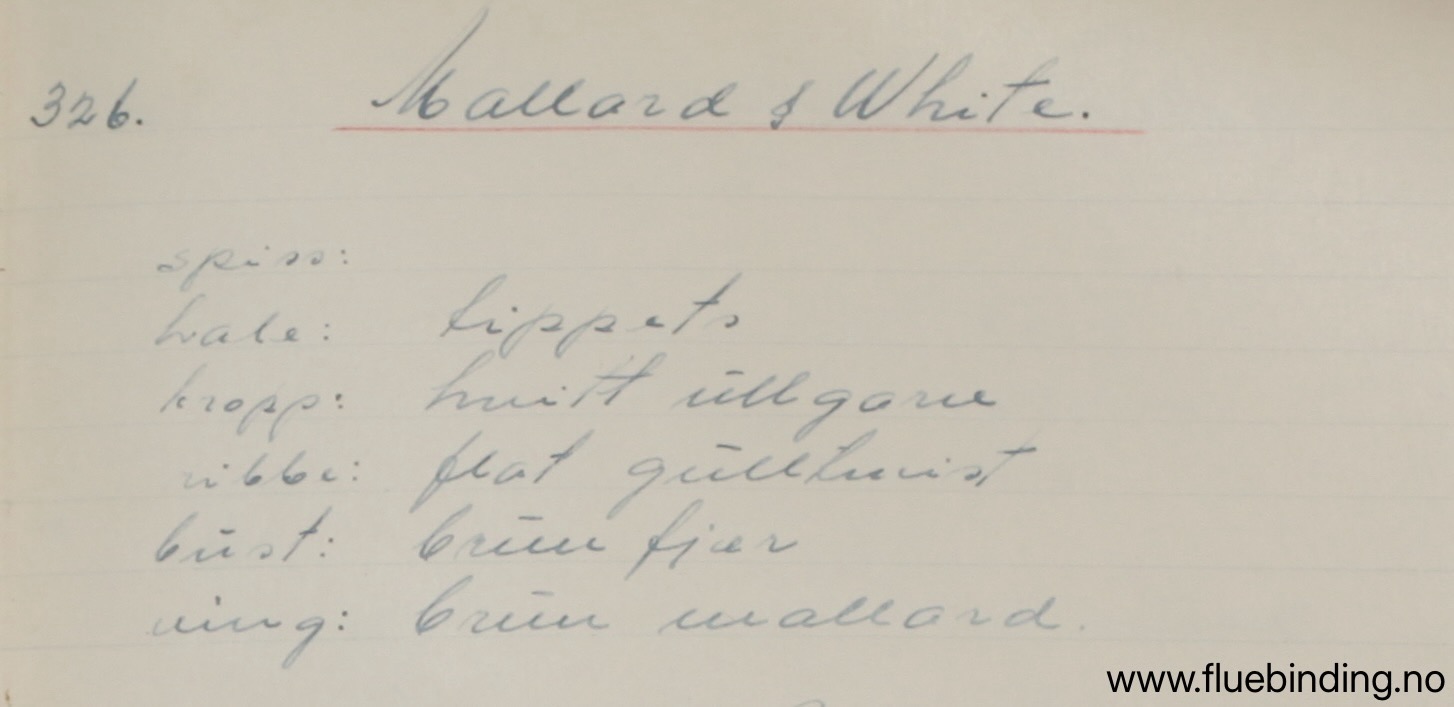 326. Mallard & White.
spiss:
hale: tippets
kropp: hvitt ullgarn
ribbe: flat gulltwist
bust: brun fjær
ving: brun mallard.
www.fluebinding.no